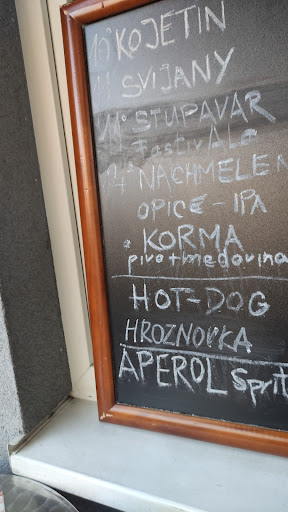 10° KOJETÍN
11° SVIJANY
11° STUPAVAR
FestivAle
14° NACHMELEN
OPICE - IPA
KORMA
pivo + medovina
HOT-DOG
HROZNOVKA
APEROL Sprit